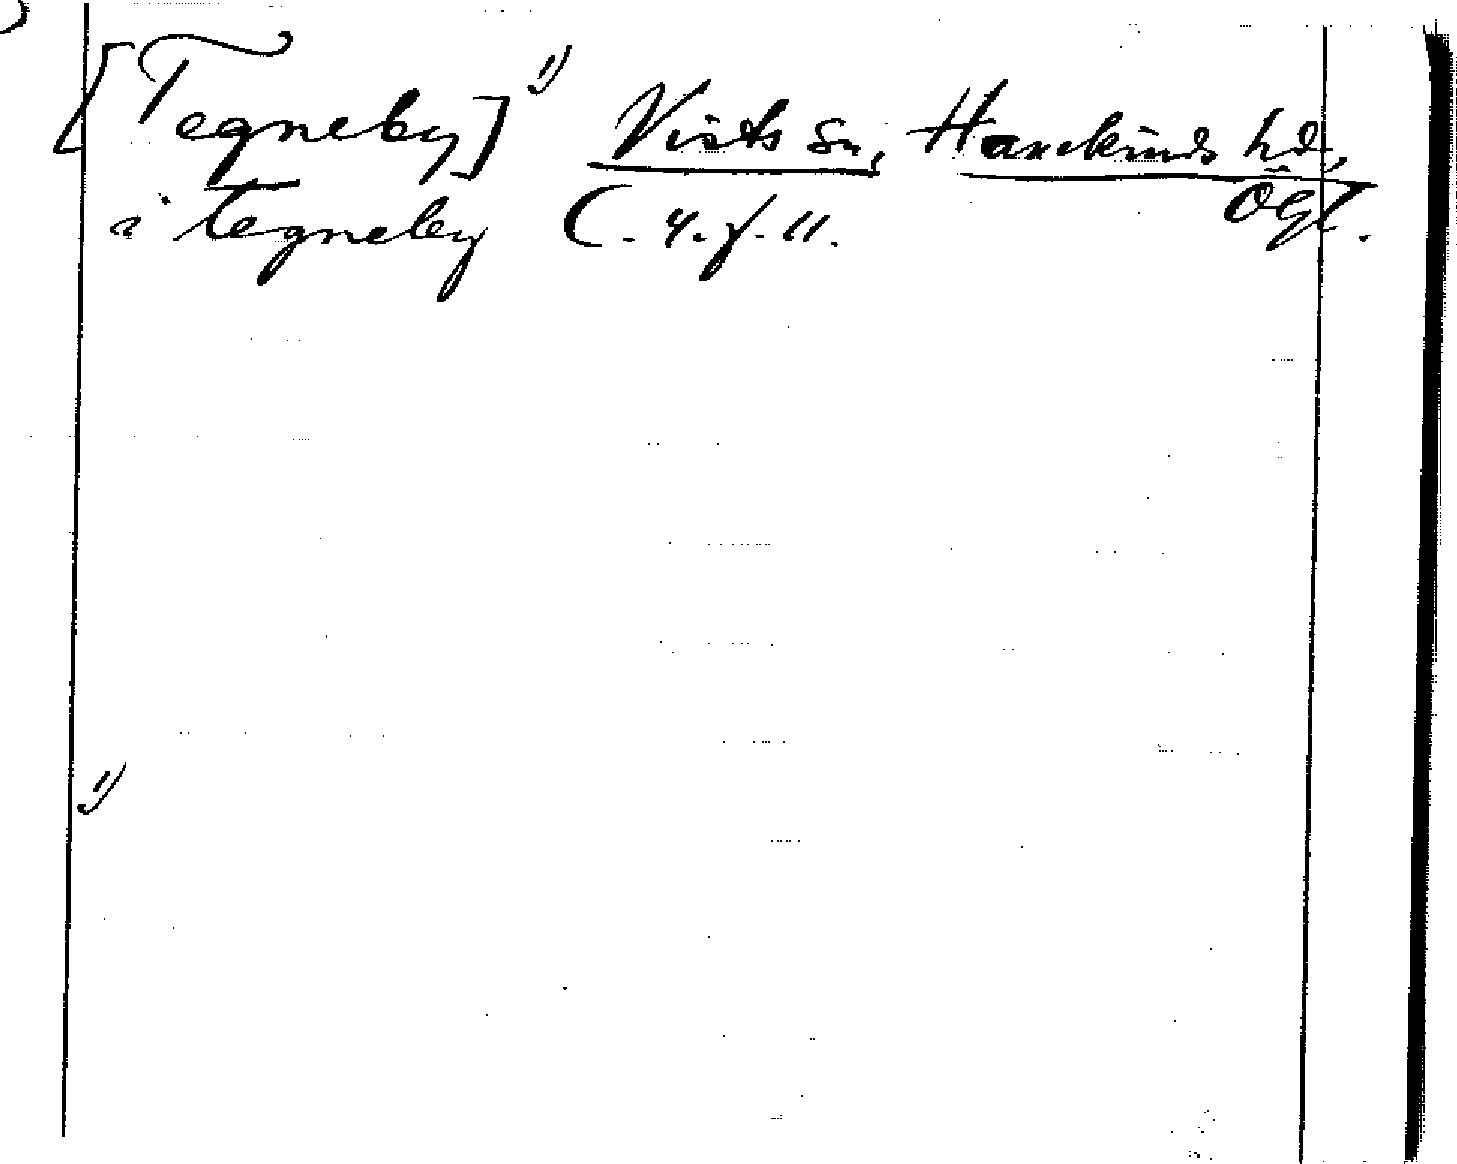 [Tegneby] 1) Vists sn, Hanekinds hd,
ÖGl.
i tegneby C. 4. f. 11.
1)